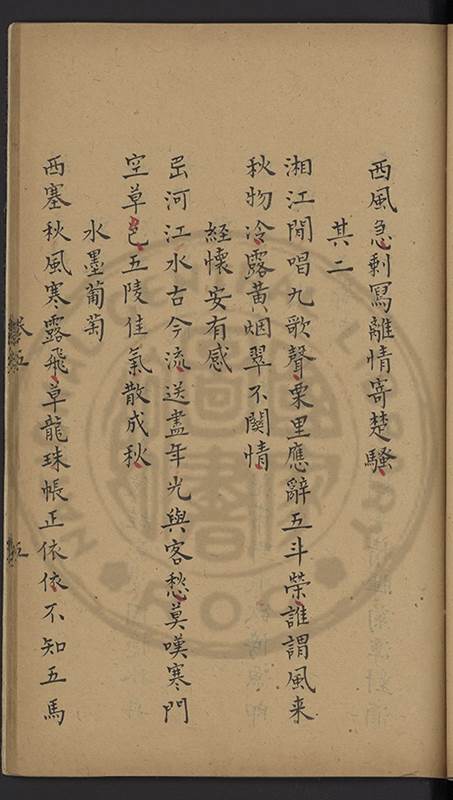 西風急剩寫離情寄楚騷
其二
湘江閒唱九歌聲栗里應辭五斗榮誰謂風来
秋物冷露黃烟翠不関情
經懷安有感
㟭河江水古今流送盡年光與客愁莫嘆寒門
空草色五陵佳氣散成秋
水墨葡萄
西塞秋風寒露飛草龍珠帳正依依不知五馬